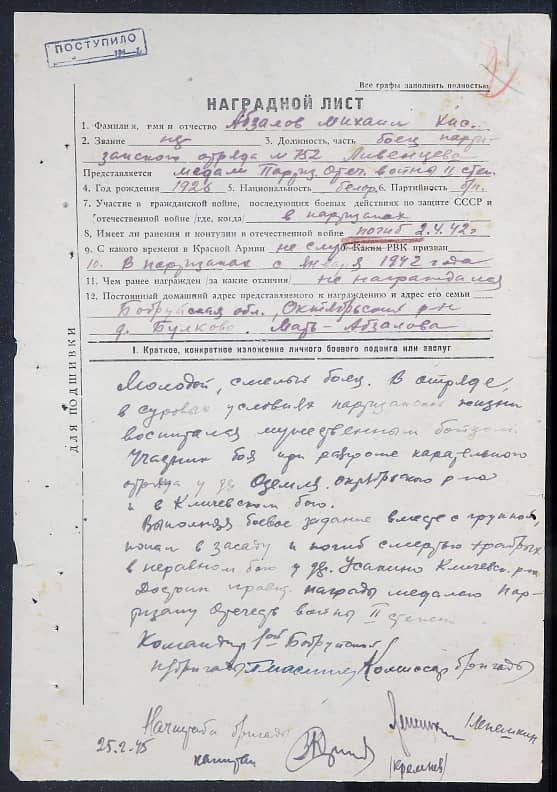 ПОСТУПИЛО
194 г.
Все графы заполнять полностью
НАГРАДНОЙ ЛИСТ
1. Фамилия, имя и отчество Абзалов Михаил Кас.
2. Звание 3. Должность, часть боец парти
занского отряда № 752 Ливенцева
Представляется медали Партиз. Отеч. война II степ.
4. Год рождения 1926 5. Национальность белор. 6. Партийность б/п.
7. Участие в гражданской войне, последующих боевых действиях по защите СССР и
отечественной войне /где, когда/ в партизанах
8. Имеет ли ранения и контузии в отечественной войне погиб 2.4.42г
9. С какого времени в Красной Армии не служ Каким РВК призван
10. В партизанах с января 1942 года
11. Чем ранее награжден /за какие отличия/ не награждался
12. Постоянный домашний адрес представляемого к награждению и адрес его семьи
Бобруйская обл., Октябрьский р-н
д. Булково. Мать - Абзалова
ДЛЯ ПОДШИВКИ
I. Краткое, конкретное изложение личного боевого подвига или заслуг
Молодой, смелый боец. В отряде,
в суровых условиях партизанской жизни
воспитался мужественным бойцом.
Участник боя при разгроме карательного
отряда у д. Оземля, октябрьского р-на
и в Кличевском бою.
Выполняя боевое задание вместе с группой,
попал в засаду и погиб смертью храбрых
в неравном бою у дер. Усакино Кличевск. р-на
Достоин правит. награды медалью Пар-
тизану Отечеств войны II степени
Командир 1ой Бобруйской
п/бригады Комиссар бригады
Начштаба бригады
25.2.45 капитан